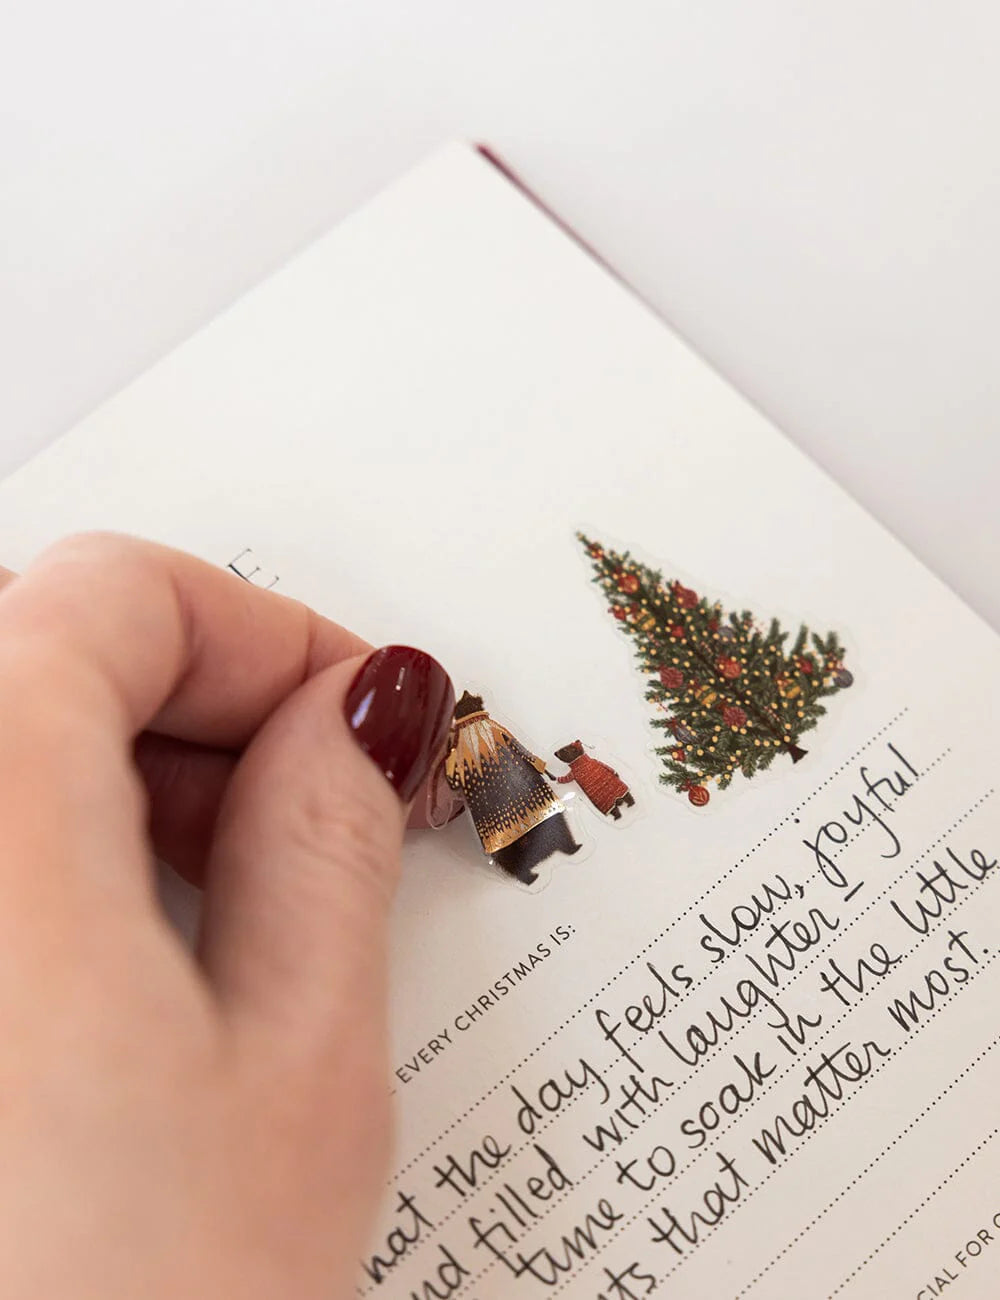 E
EVERY CHRISTMAS IS:
the day feels slow, joyful
filled with laughter –
time to soak in the little
that matter most.
FOR